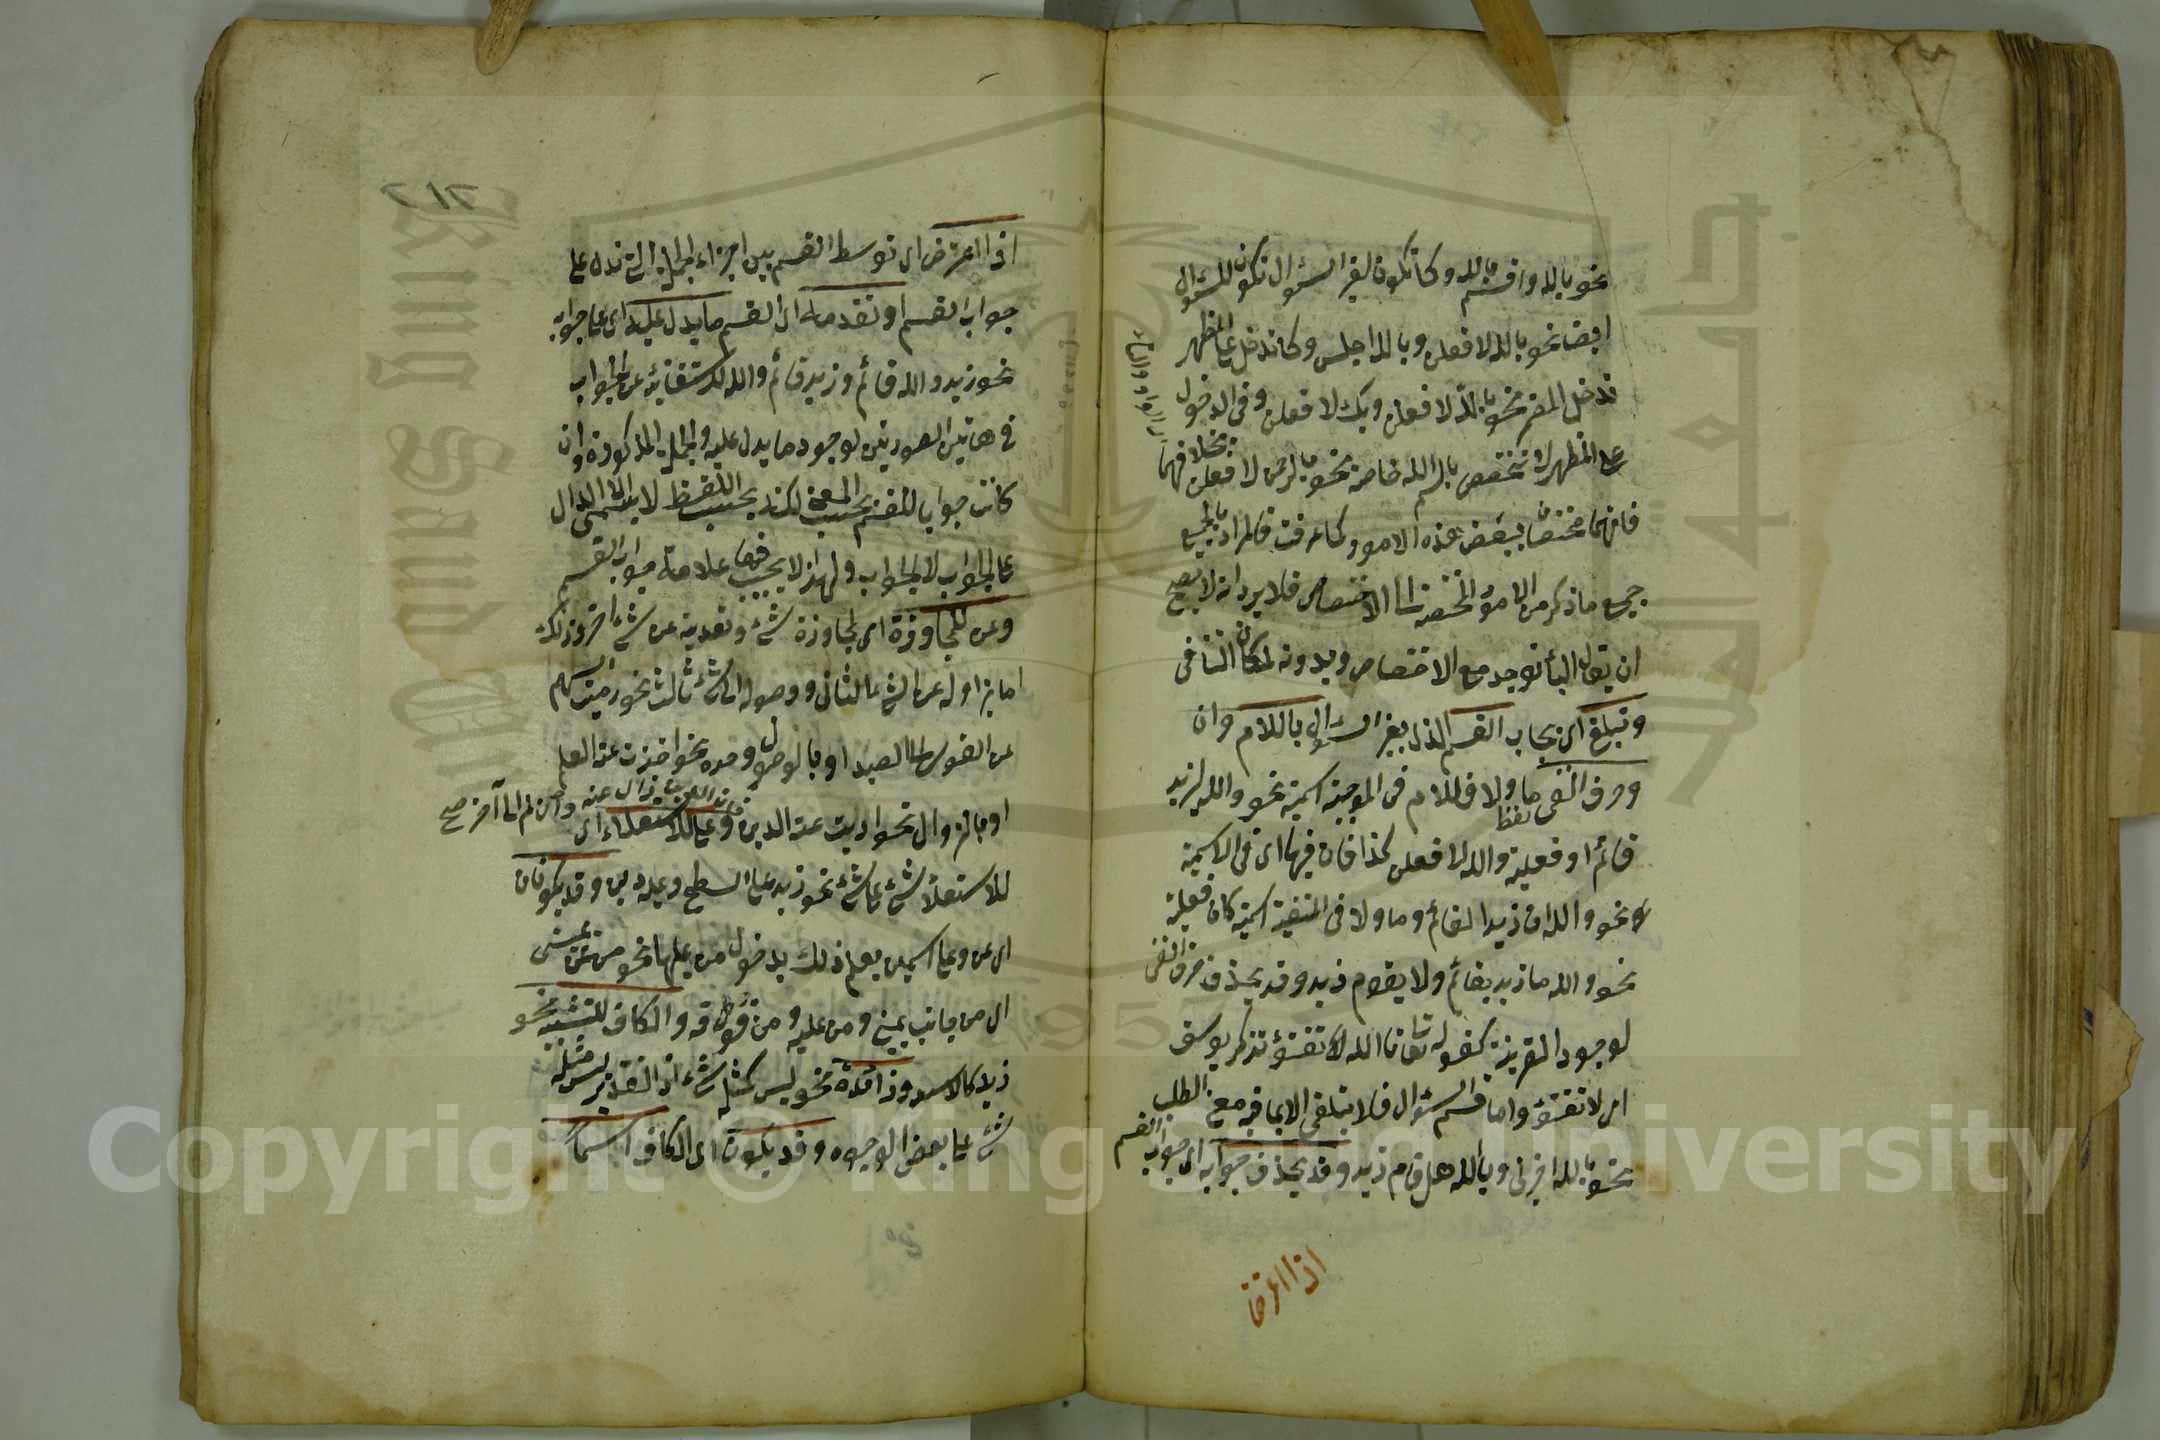 نحو بالله واقسم بالله وكما تكون لغير السؤال تكون للسؤال
ايضا نحو بالله لافعلن وبالله اجلس وكما تدخل على المظهر
تدخل المضمر نحو بالله لافعلن وبك لافعلن وفى الدخول
على المظهر لا تختص باسم الله خاصة نحو بالرحمن لافعلن بخلافهما
اى الواو والتاء
فانهما مختصتان ببعض هذه الامور كما عرفت فالمراد بالجميع
جميع ما ذكر من الامور المختصة الاختصاص فلا يرد انه لا يصح
ان يقال الباء توجد مع الاختصاص وبدونه لمكان التنافى
ويتلقى اى يجاب القسم الذى بغير السؤال باللام وان
وحرف النفى ما ولا فاللام فى الموجبة اسمية نحو والله لزيد
لفظا
قائم او فعلية والله لافعلن كذا فان فيها اى فى الاسمية
نحو والله ان زيدا لقائم وما ولا فى المنفية اسمية كان فعلية
نحو والله ما زيد بقائم ولا يقوم زيد وقد يحذف حرف النفى
لوجود القرينة كقوله تعالى تالله تفتؤ تذكر يوسف
اى لا تفتؤ واما قسم السؤال فلا يتلقى الا بما فيه معنى الطلب
نحو بالله اخبرنى وبالله هل قام زيد وقد يحذف جوابه اى جواب القسم
اذا اعترض
٢١٢
اذا اعترض اى توسط القسم بين اجزاء الجملة التى تدل على
جواب القسم او تقدمه اى القسم ما يدل عليه اى على جوابه
نحو زيد والله قائم وزيد قائم والله لاستغنائه عن الجواب
فى هاتين الصورتين لوجود ما يدل عليه والجملة المذكورة وان
كانت جوابا للقسم بحسب المعنى لكنه بحسب اللفظ لا يسمى الا الدال
على الجواب لا الجواب ولهذا لا يجب فيها علامة جواب القسم
وعن للمجاوزة اى لمجاوزة شئ وتعديته عن شئ آخر وذلك
اما بزواله عن الشئ الثانى ووصوله الى شئ ثالث نحو رميت السهم
عن القوس الى الصيد او بالوصول وحده نحو اخذت عنه العلم
او بالزوال نحو اديت عنه الدين وعلى للاستعلاء اى
فان الدين زال عنه وان لم يصل الى آخر صح
للاستعلاء شئ على شئ نحو زيد على السطح وعليه دين وقد يكونان
اى عن وعلى اسمين يعلم ذلك بدخول من عليهما نحو من عن يمينى
اى من جانب يمينى ومن عليه ومن فوقه والكاف للتشبيه نحو
زيد كالاسد وزائدة نحو ليس كمثله شئ اذ التقدير ليس مثله
شئ على بعض الوجوه وقد يكون اى الكاف اسما